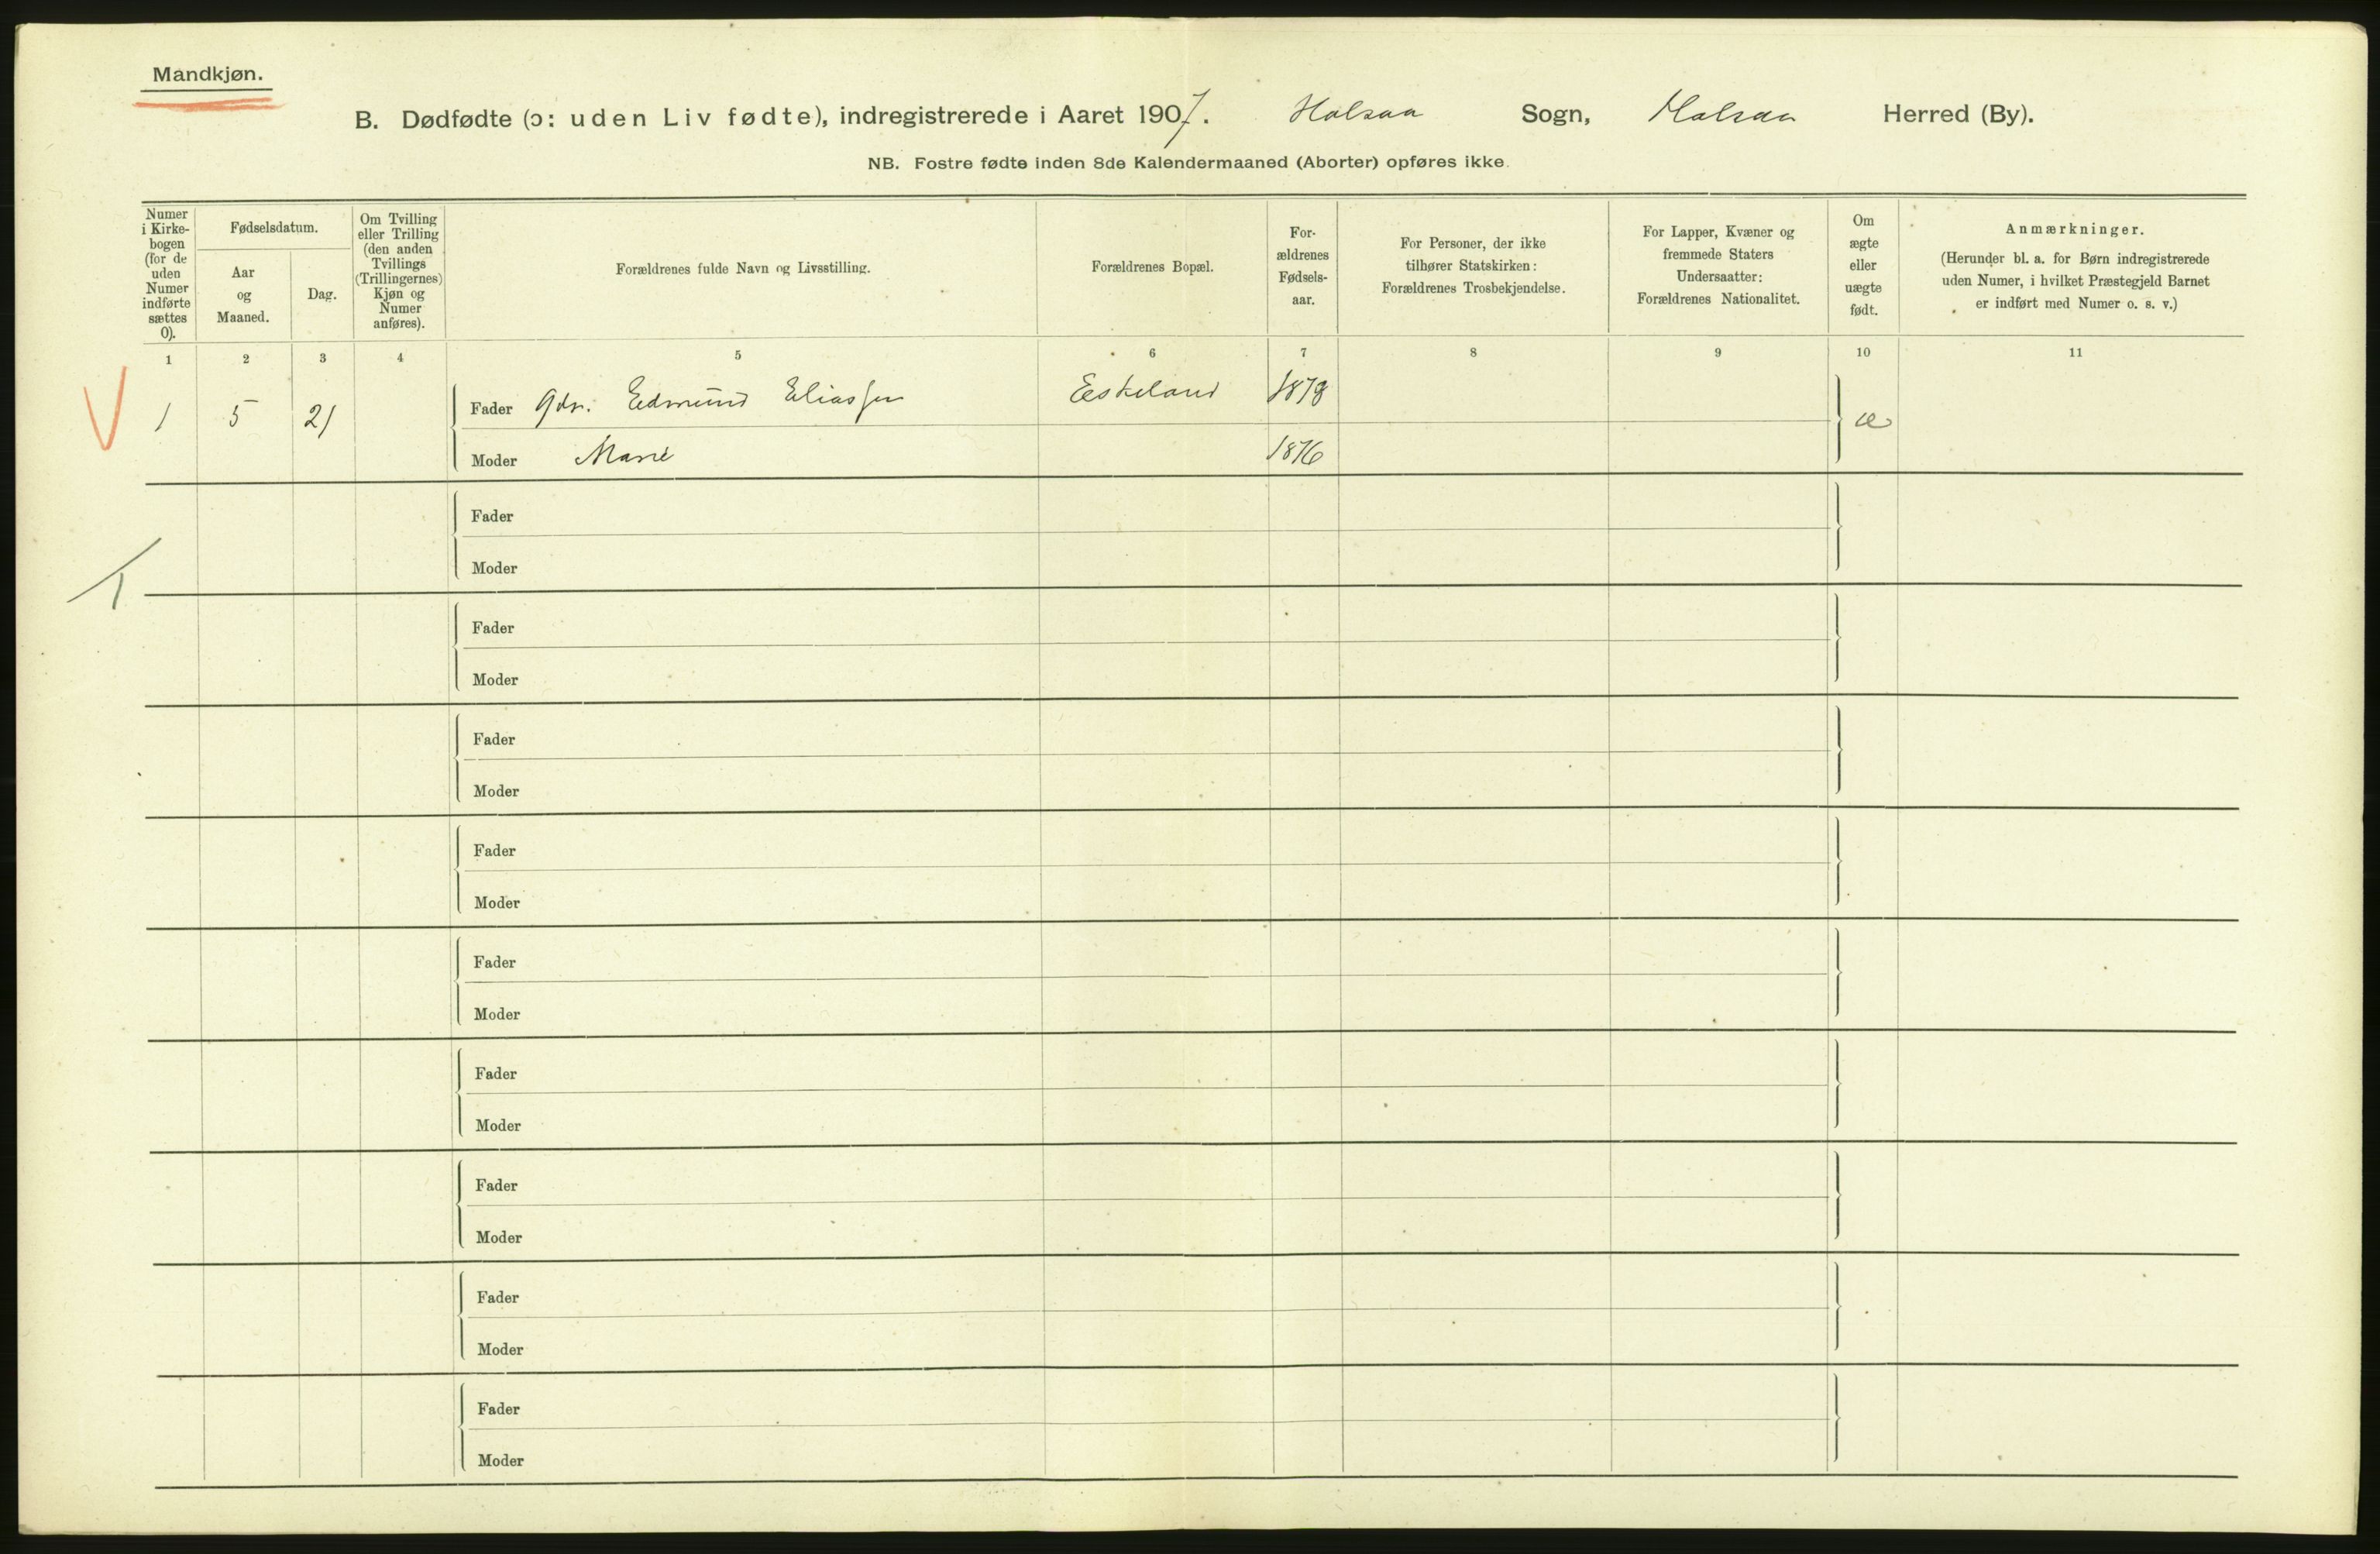 Mandkjøn.
B. Dødfødte (ɔ: uden Liv fødte), indregistrerede i Aaret 1907. Halsaa Sogn, Halsaa Herred (By).
NB. Fostre fødte inden 8de Kalendermaaned (Aborter) opføres ikke.
Numer i Kirke-bogen (for de uden Numer indførte sættes 0).
Fødselsdatum.
Aar og Maaned.
Dag.
Om Tvilling eller Trilling (den anden Tvillings (Trillingernes) Kjøn og Numer anføres).
Forældrenes fulde Navn og Livsstilling.
Forældrenes Bopæl.
For-ældrenes Fødsels-aar.
For Personer, der ikke tilhører Statskirken: Forældrenes Trosbekjendelse.
For Lapper, Kvæner og fremmede Staters Undersaatter: Forældrenes Nationalitet.
Om ægte eller uægte født.
Anmærkninger.
(Herunder bl. a. for Børn indregistrerede uden Numer, i hvilket Præstegjeld Barnet er indført med Numer o. s. v.)
1 2 3 4 5 6 7 8 9 10 11
V 1 5 21 Fader Gdr. Edmund Eliassen Eskeland 1878 æ
Moder Marie 1876
Fader
Moder
1
Fader
Moder
Fader
Moder
Fader
Moder
Fader
Moder
Fader
Moder
Fader
Moder
Fader
Moder
Fader
Moder